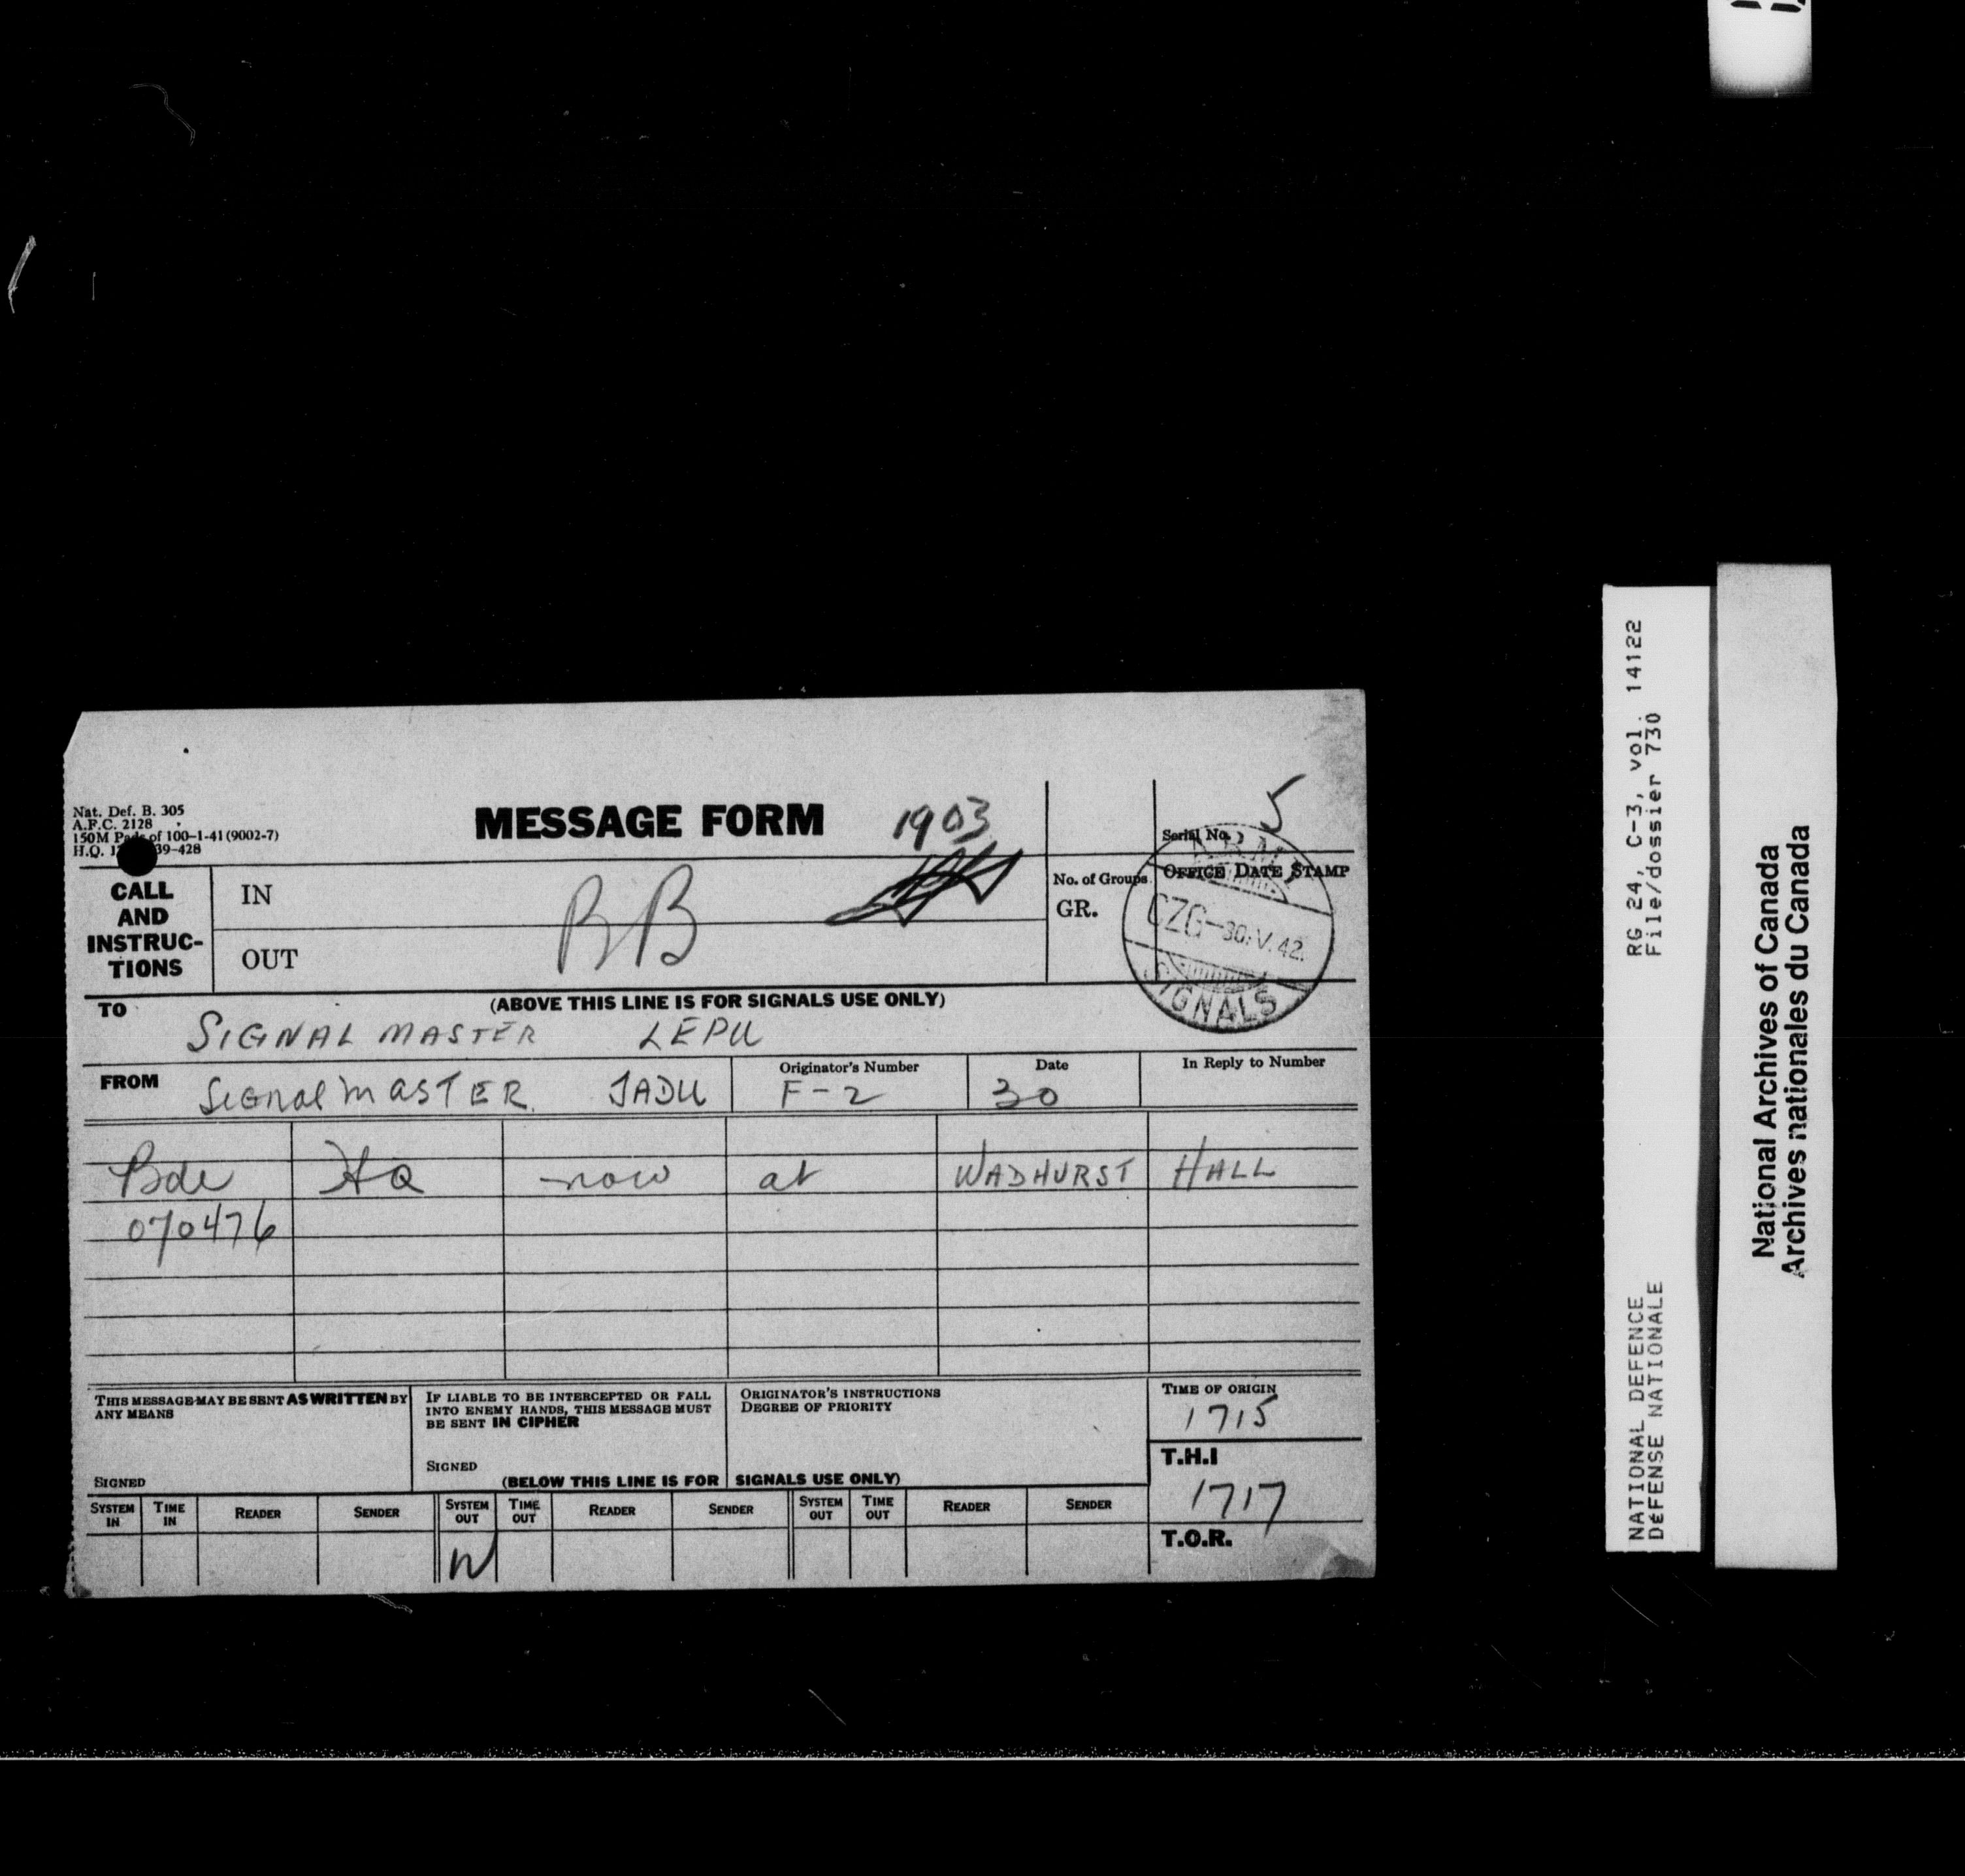 Nat. Def. B. 305
A.F.C. 2128
150M Pads of 100-1-41 (9002-7)
H.Q. 39-428
MESSAGE FORM 1903
Serial No. 5
CALL AND INSTRUCTIONS
IN
OUT
BB
No. of Groups
GR.
OFFICE DATE STAMP
ARMY
CZG-30.V.42.
SIGNALS
(ABOVE THIS LINE IS FOR SIGNALS USE ONLY)
TO SIGNAL MASTER LEPU
FROM Signal MASTER JADU
Originator's Number F-2
Date 30
In Reply to Number
Bde HQ now at WADHURST HALL
070476
THIS MESSAGE MAY BE SENT AS WRITTEN BY
ANY MEANS
SIGNED
IF LIABLE TO BE INTERCEPTED OR FALL
INTO ENEMY HANDS, THIS MESSAGE MUST
BE SENT IN CIPHER
SIGNED
ORIGINATOR'S INSTRUCTIONS
DEGREE OF PRIORITY
TIME OF ORIGIN
1715
T.H.I
1717
T.O.R.
(BELOW THIS LINE IS FOR SIGNALS USE ONLY)
SYSTEM IN TIME IN READER SENDER SYSTEM OUT TIME OUT READER SENDER SYSTEM OUT TIME OUT READER SENDER
W
RG 24, C-3, vol. 14122
File/dossier 730
NATIONAL DEFENCE
DÉFENSE NATIONALE
National Archives of Canada
Archives nationales du Canada